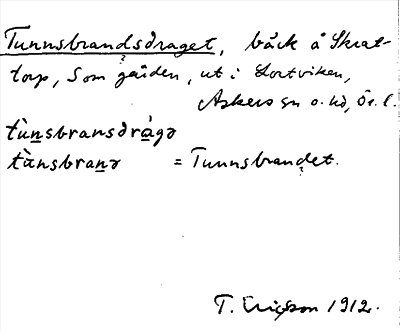 Tunnsbrandsdraget, bäck å Skrat-
torp, som gården, ut i Lortviken,
Askers sn o. hd, Ör. l.
tùn̲sbransdrá̲gə
tùnsbran̲ə = Tunnsbrandet.
T. Ericsson 1912.